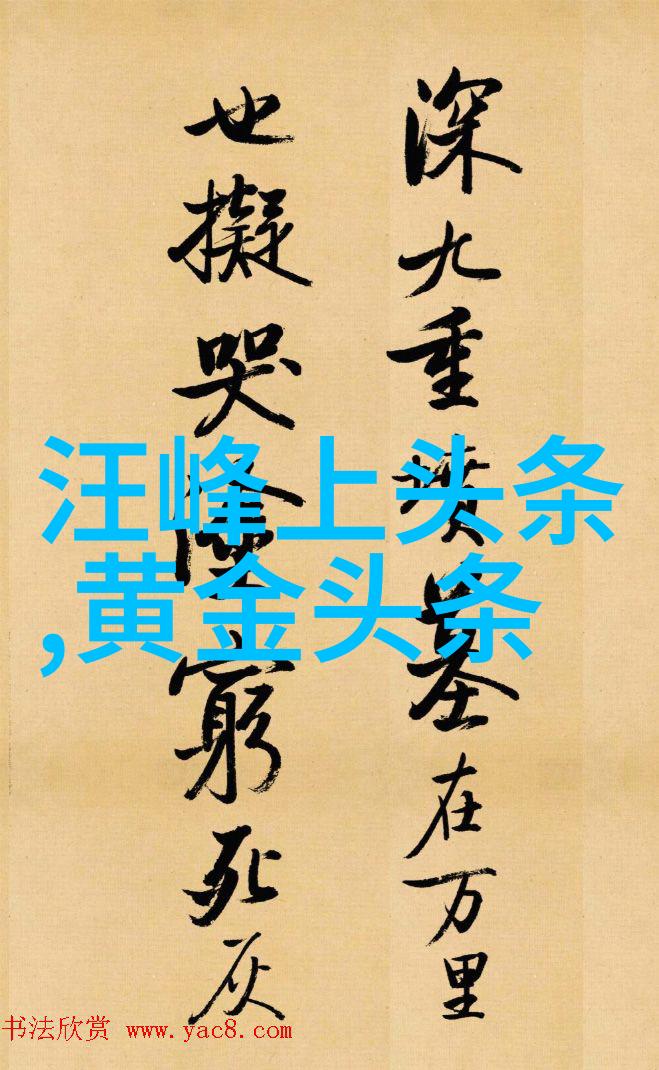 深九重墳墓在万里
也擬哭塗窮死灰
汪峰上头条
,黄金头条
书法欣赏 www.yac8.com